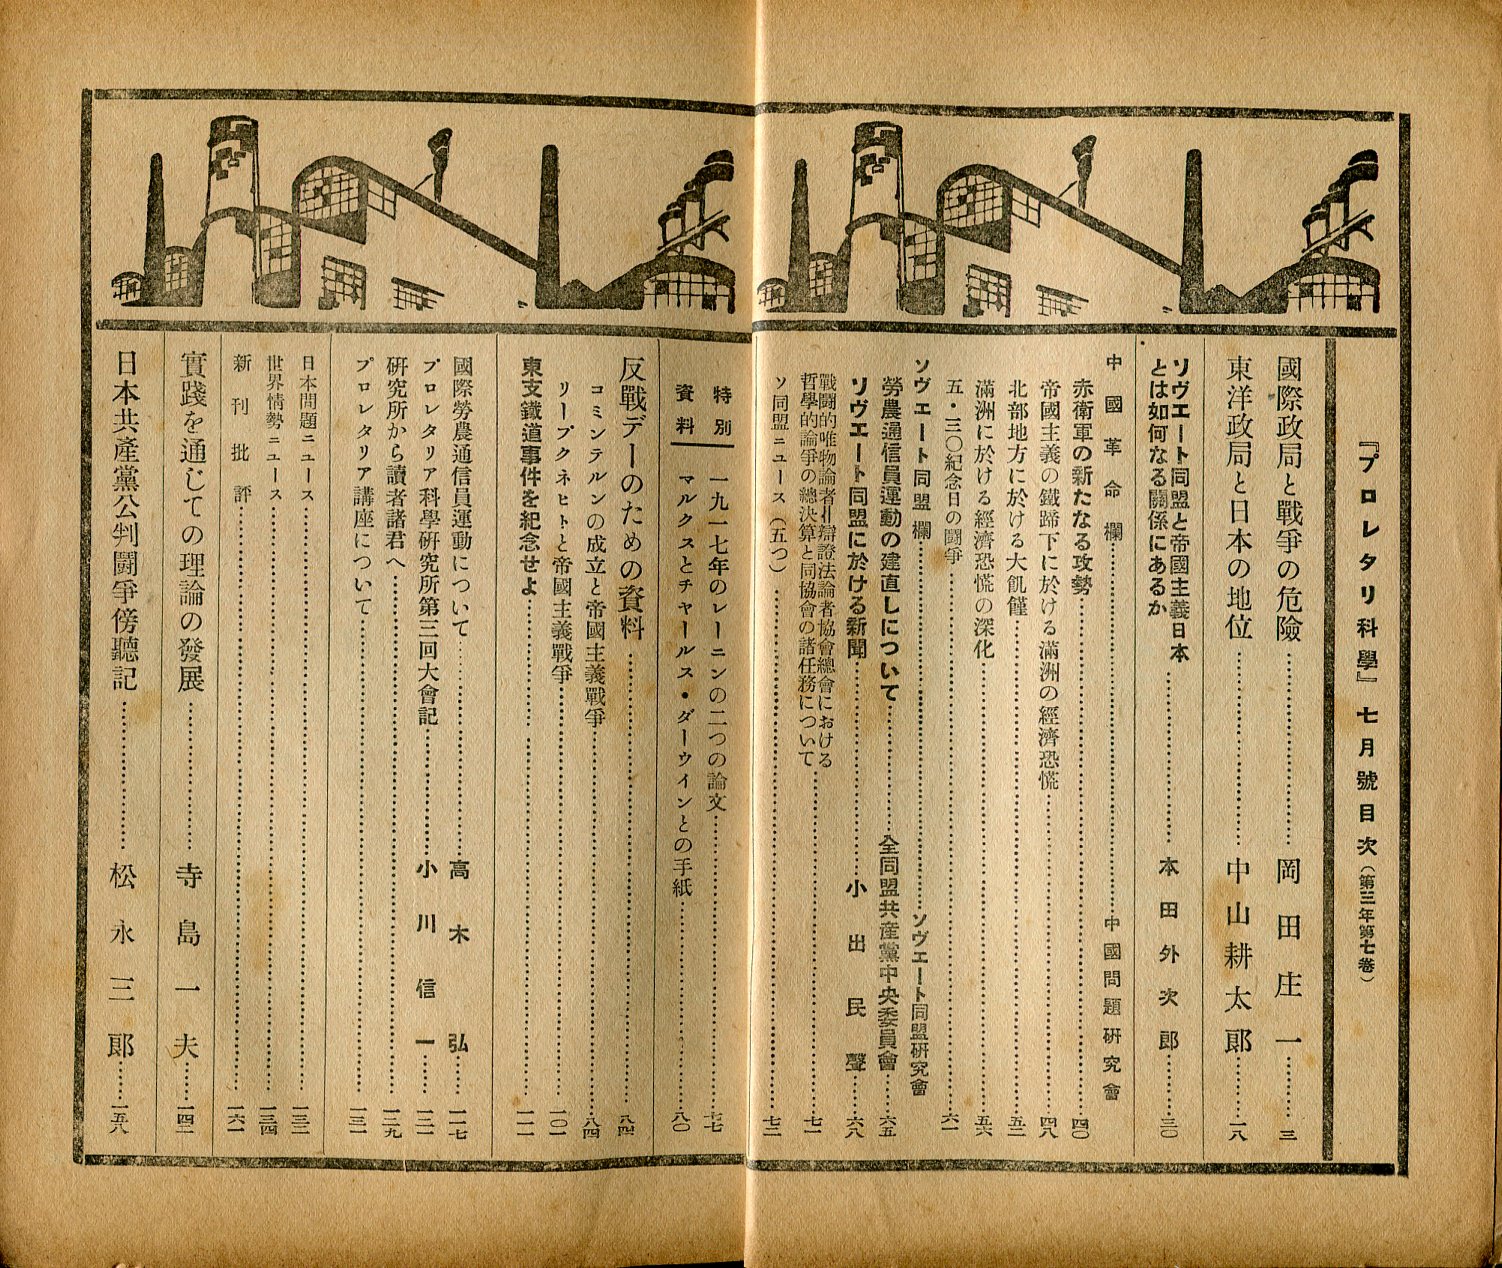 『プロレタリ科學』七月號目次(第三年第七巻)
國際政局と戰爭の危險…………岡田庄一……三
東洋政局と日本の地位…………中山耕太郎……一八
ソヴエート同盟と帝國主義日本
とは如何なる關係にあるか…………本田外次郎……三〇
中國革命欄…………中國問題硏究會
赤衛軍の新たなる攻勢…………四〇
帝國主義の鐵蹄下に於ける滿洲の經濟恐慌…………四八
北部地方に於ける大飢饉…………五二
滿洲に於ける經濟恐慌の深化…………五六
五・三〇紀念日の鬪爭…………六一
ソヴエート同盟欄…………ソヴエート同盟硏究會
勞農通信員運動の建直しについて…………全同盟共産黨中央委員會……六五
ソヴエート同盟に於ける新聞…………小出民聲……六八
戰鬪的唯物論者=辯證法論者協會總會における
哲學的論爭の總決算と同協會の諸任務について…………七一
ソ同盟ニュース(五つ)…………七三
特別
資料
一九一七年のレーニンの二つの論文…………七七
マルクスとチャールス・ダーウインとの手紙…………八〇
反戰デーのための資料…………八四
コミンテルンの成立と帝國主義戰爭…………八四
リープクネヒトと帝國主義戰爭…………一〇一
東支鐵道事件を紀念せよ…………一一一
國際勞農通信員運動について…………高木弘……一一七
プロレタリア科學硏究所第三回大會記…………小川信一……一二一
硏究所から讀者諸君へ…………一二九
プロレタリア講座について…………一三一
日本問題ニュース…………一三二
世界情勢ニュース…………一三四
新刊批評…………一六一
實踐を通じての理論の發展…………寺島一夫……一四二
日本共產黨公判鬪爭傍聽記…………松永三郎……一五八